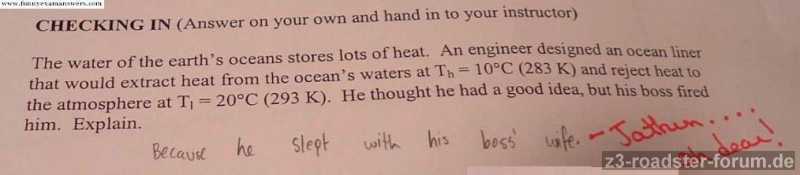 www.funnyexamanswers.com
CHECKING IN (Answer on your own and hand in to your instructor)
The water of the earth's oceans stores lots of heat. An engineer designed an ocean liner
that would extract heat from the ocean's waters at Th = 10°C (283 K) and reject heat to
the atmosphere at Tl = 20°C (293 K). He thought he had a good idea, but his boss fired
him. Explain.
Because he slept with his boss' wife. - Jathun....
oh dear!
z3-roadster-forum.de